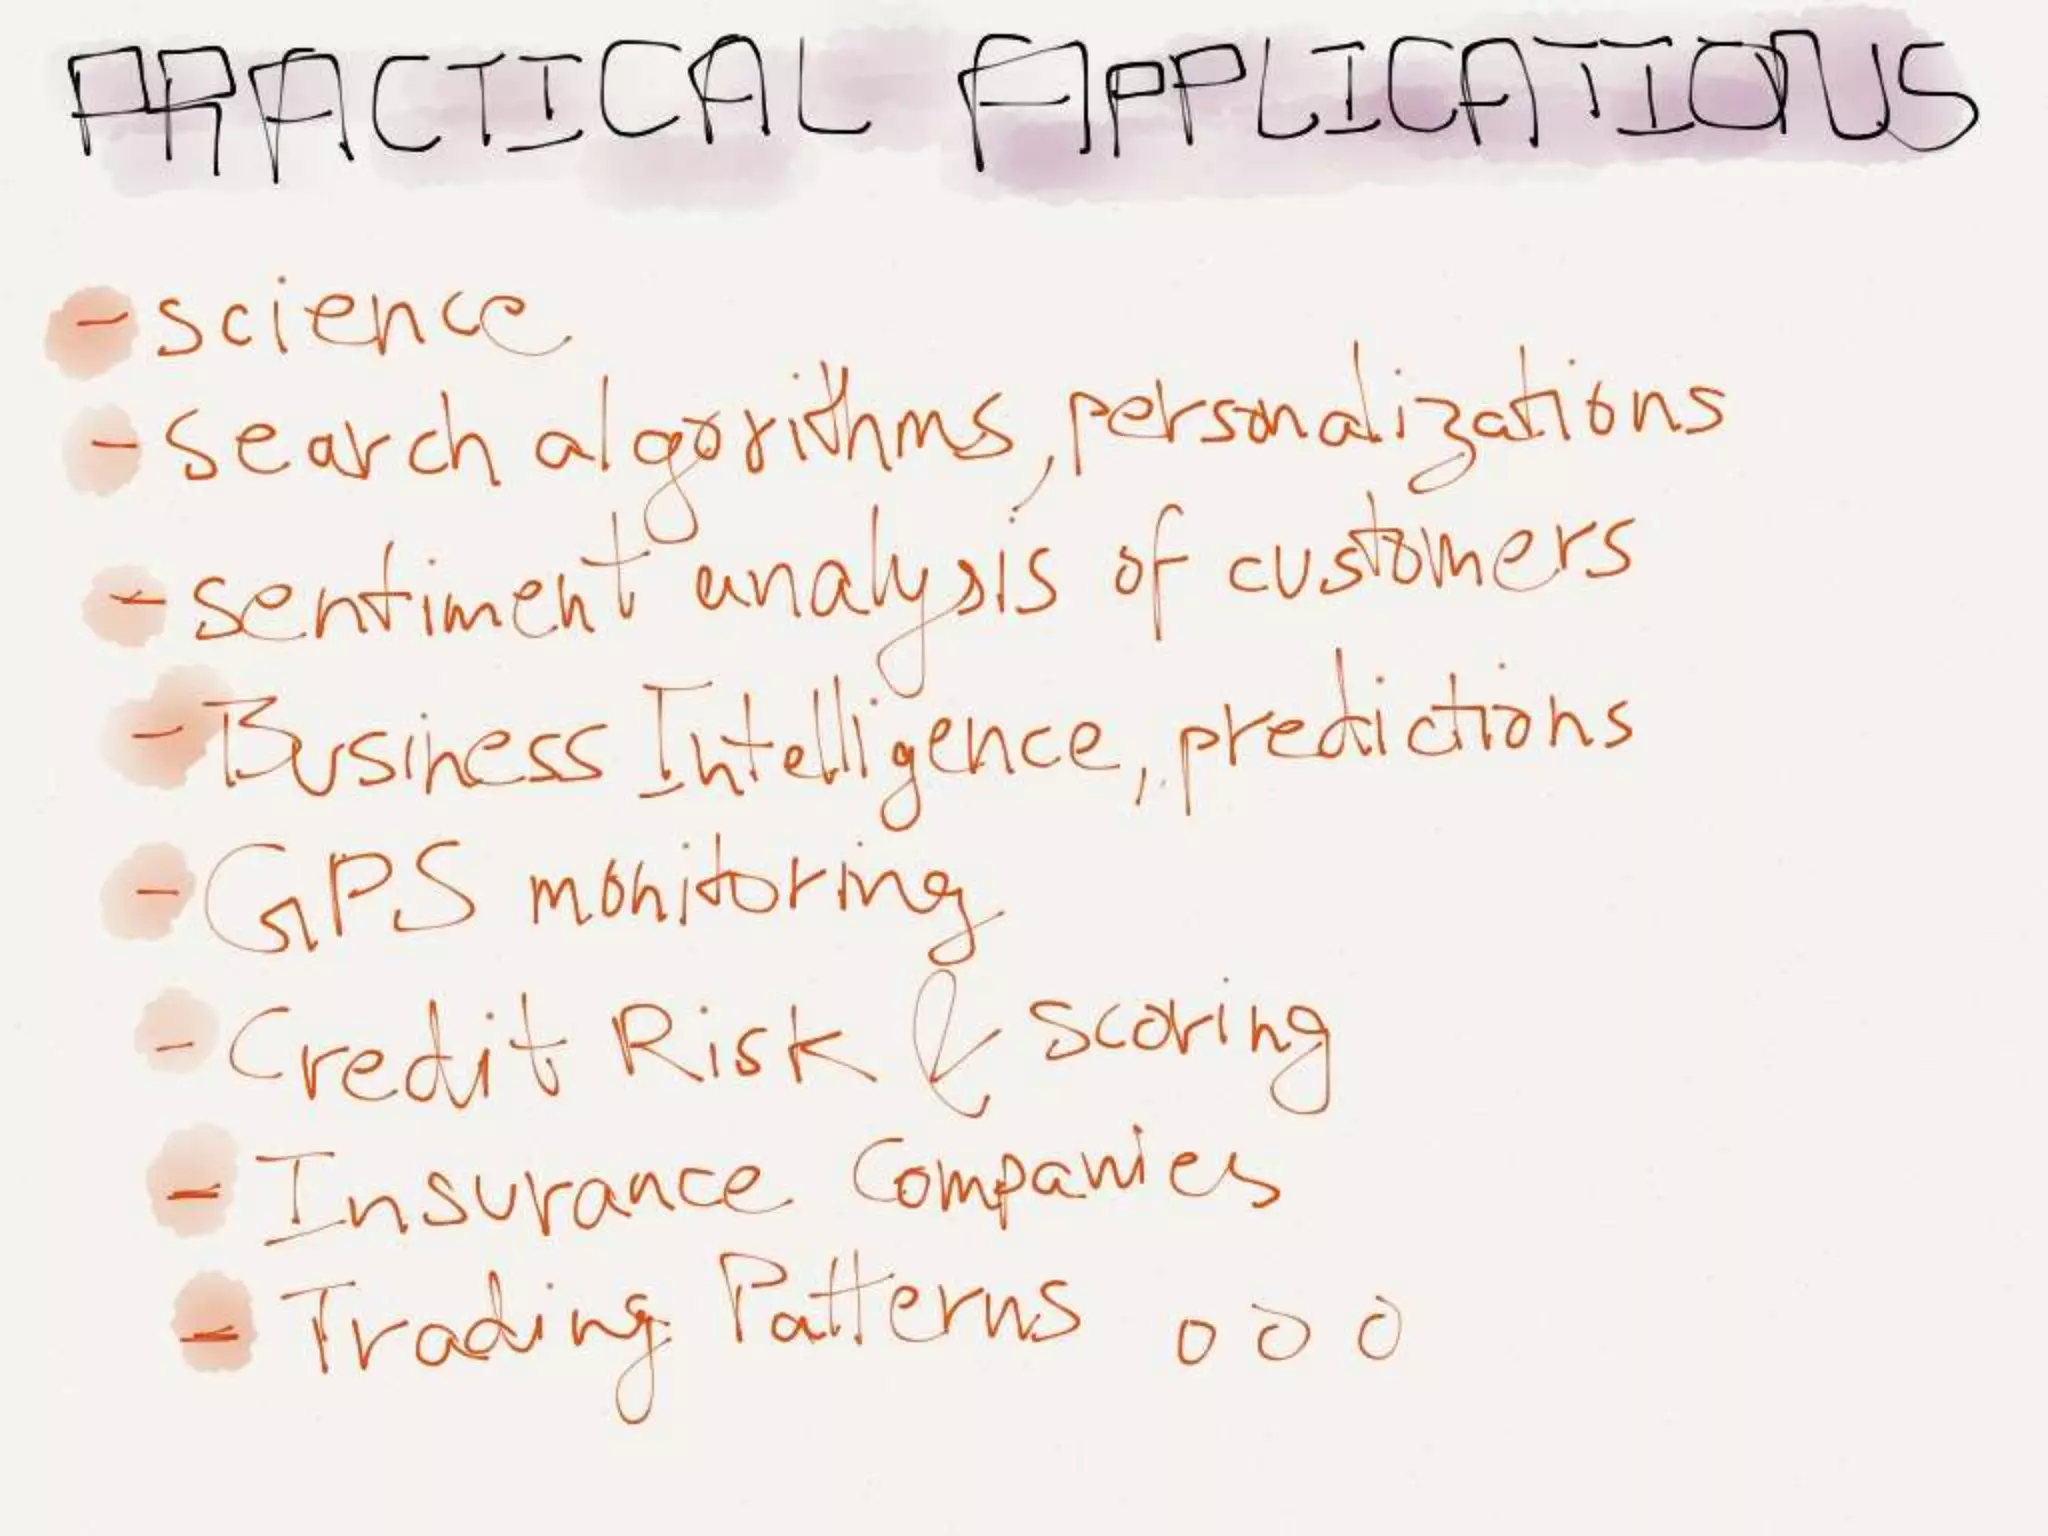 PRACTICAL APPLICATIONS
- science
- search algorithms, personalizations
- sentiment analysis of customers
- Business Intelligence, predictions
- GPS monitoring
- Credit Risk & scoring
- Insurance Companies
- Trading Patterns ooo